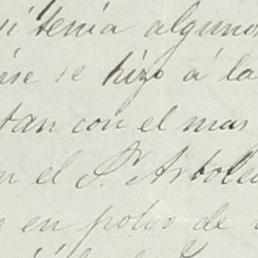 si tenia algunos
se hizo á la
tan con el mas
en el Sr. Arbole
en polvo de